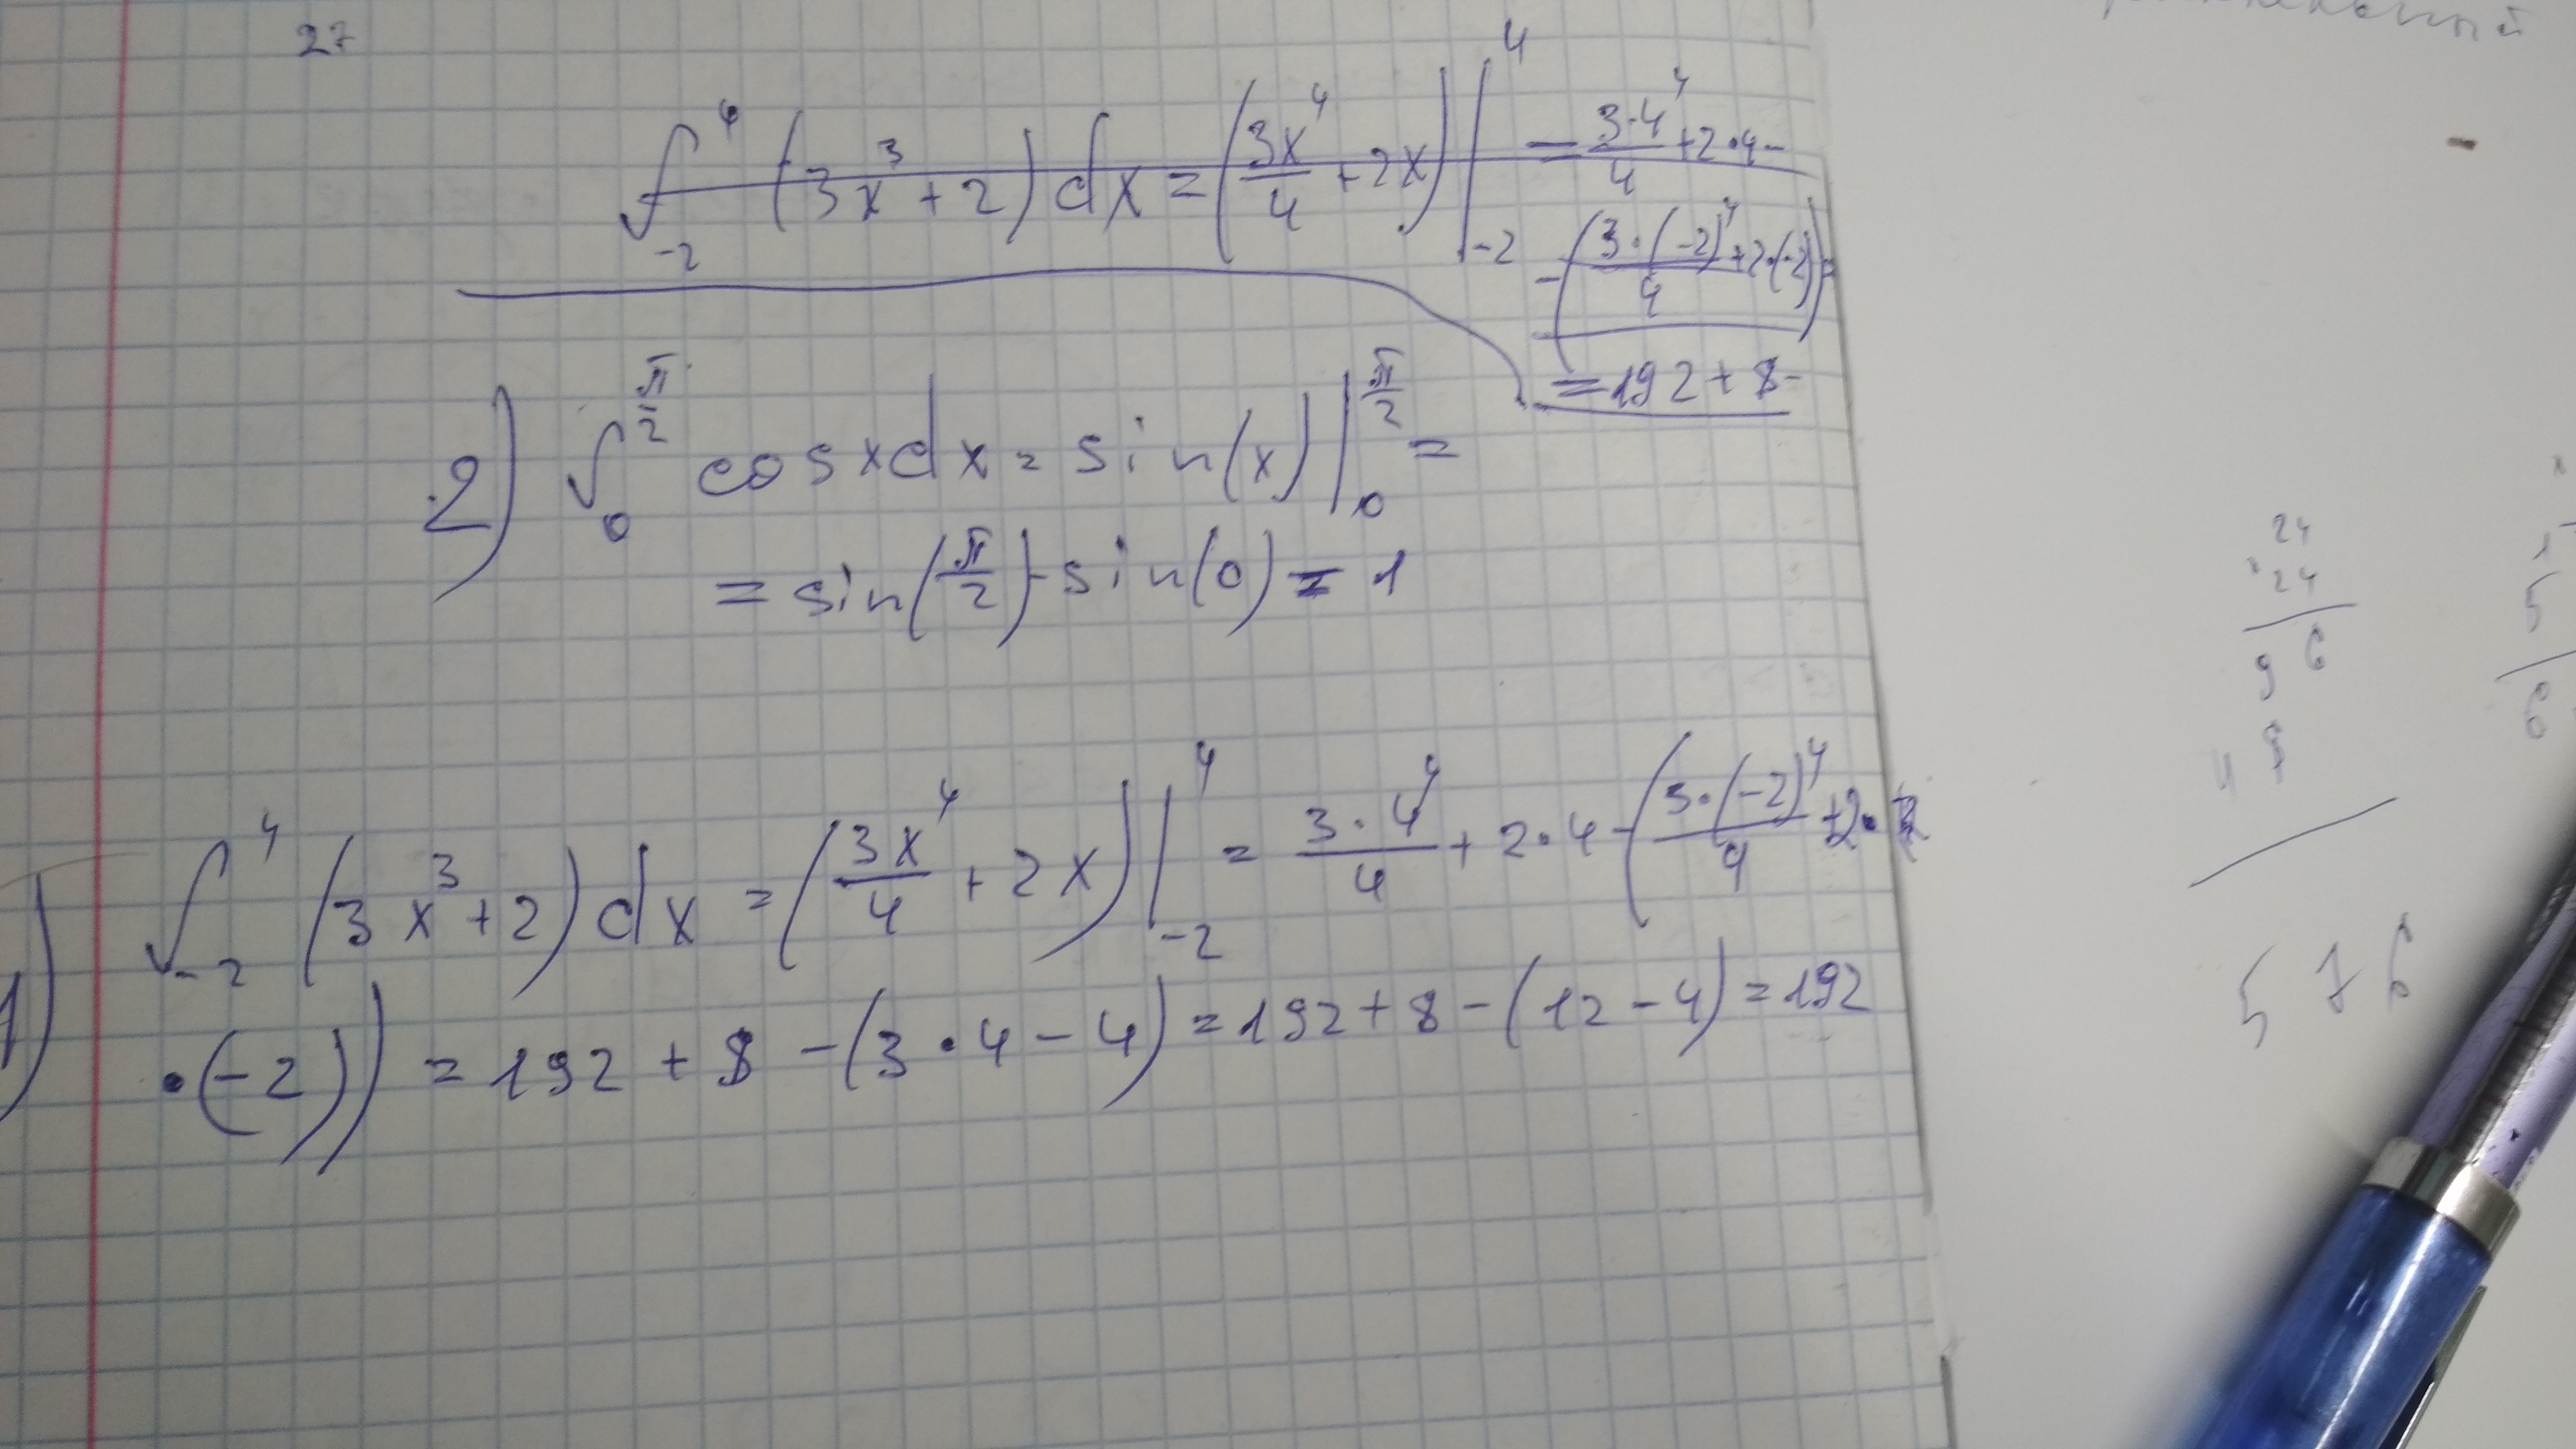 27
∫₋₂⁴ (3x³+2)dx = (3x⁴/4 + 2x)|₋₂⁴ = 3·4⁴/4 + 2·4 -
- (3·(-2)⁴/4 + 2·(-2)) =
= 192 + 8 -
2) ∫₀^(π/2) cosxdx = sin(x)|₀^(π/2) =
= sin(π/2) - sin(0) = 1
1) ∫₋₂⁴ (3x³+2)dx = (3x⁴/4 + 2x)|₋₂⁴ = 3·4⁴/4 + 2·4 - (3·(-2)⁴/4 + 2·
·(-2)) = 192 + 8 - (3·4 - 4) = 192 + 8 - (12 - 4) = 192
24
× 24
96
48
576